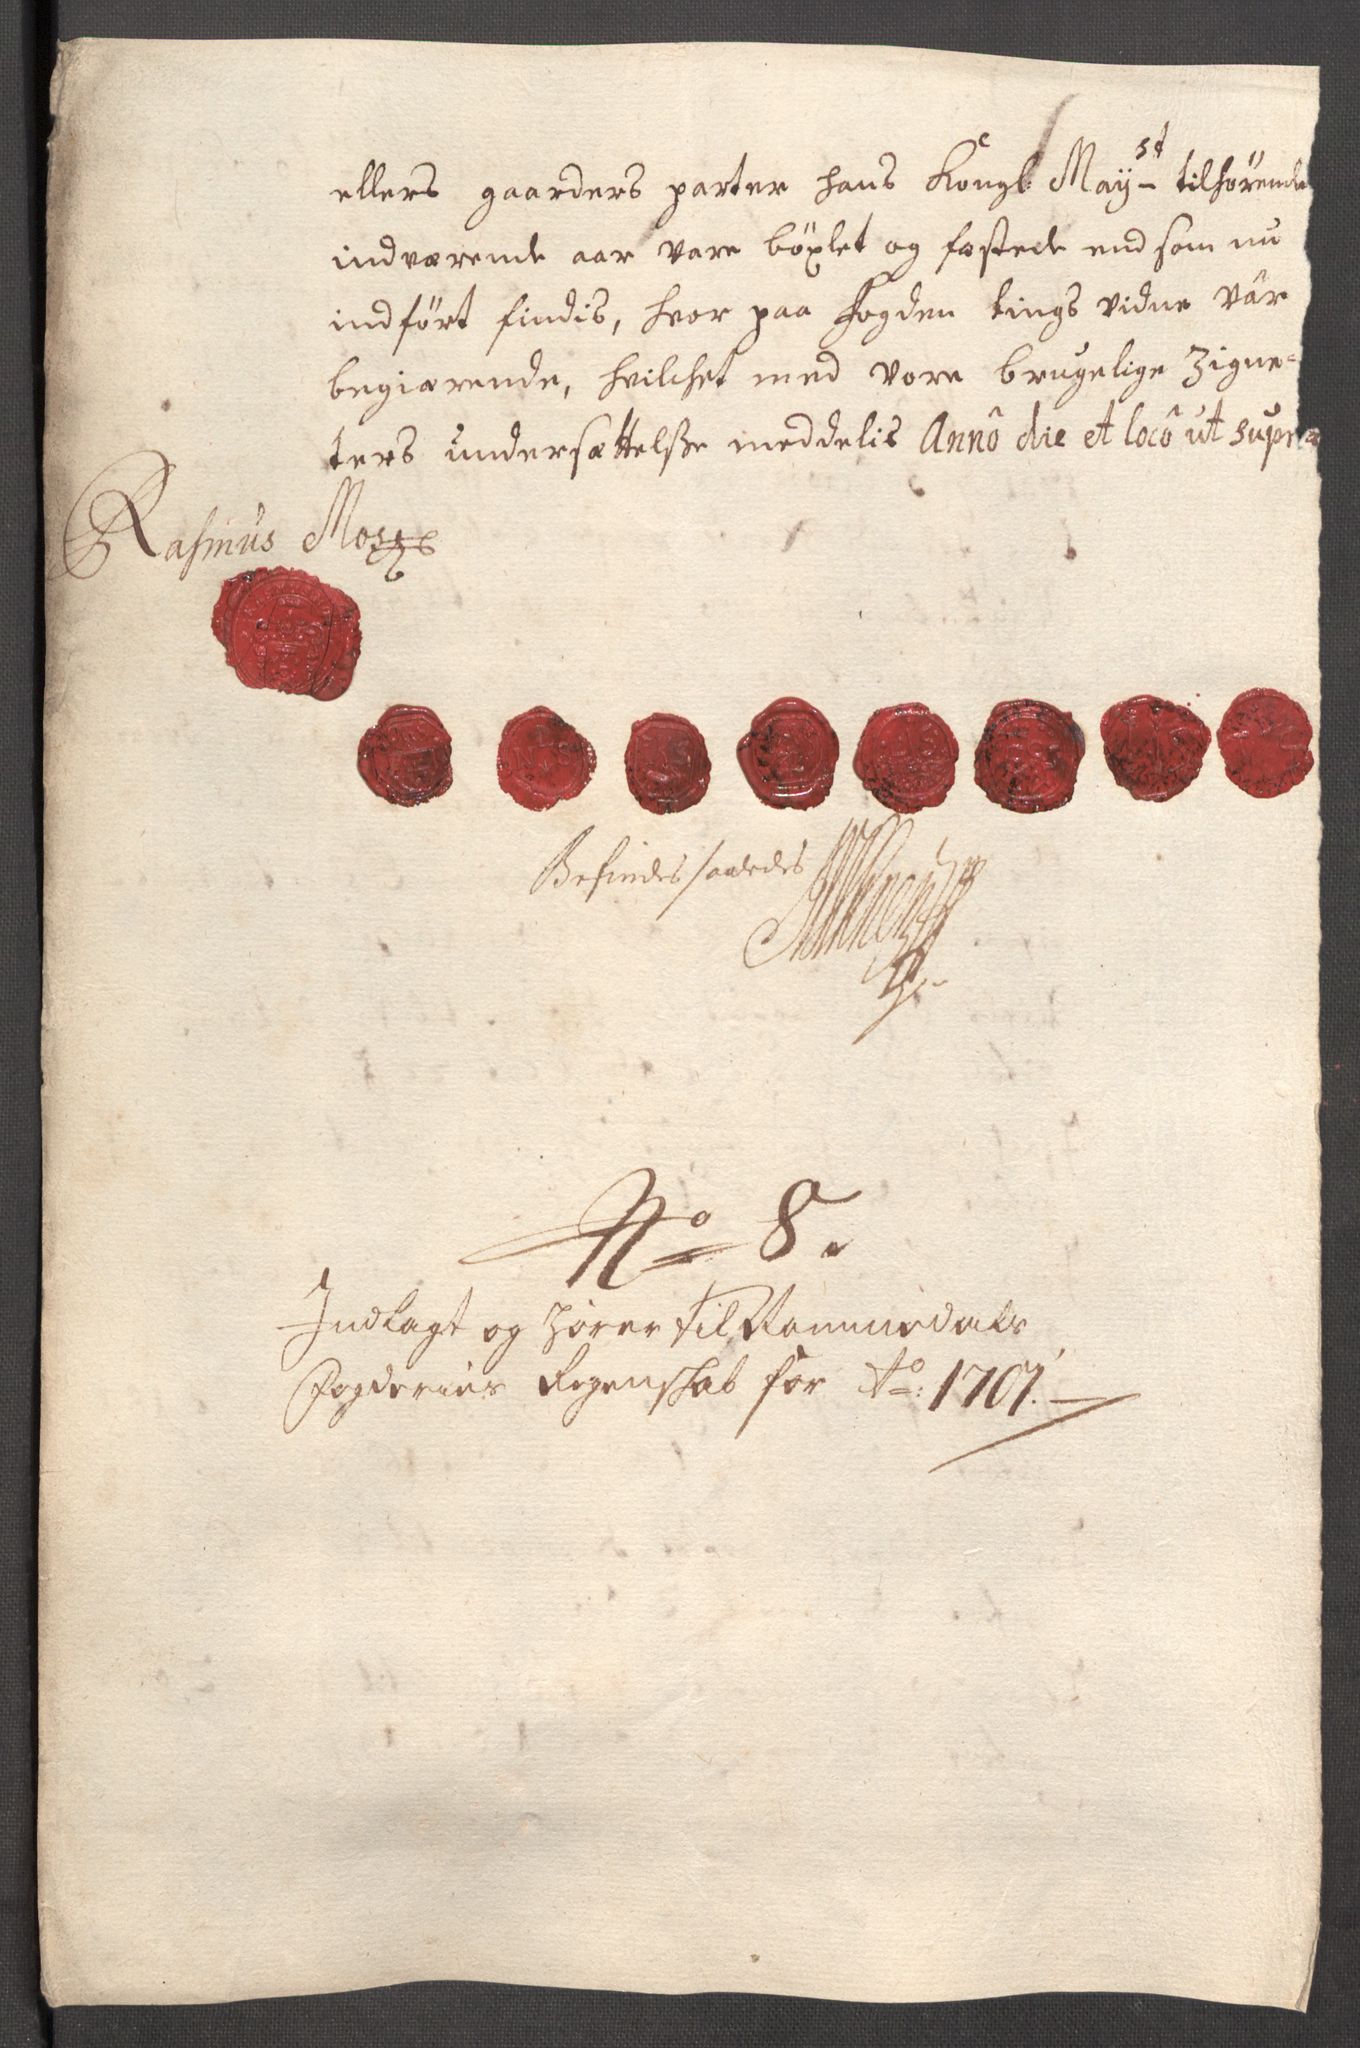 ellers gaarders parter hans Kongl: Mayst tilhørende
indværende aar vare böxlet og fæstede end som nu
indført findis, hvor paa Fogden tings vidne vâr
begiærende, hvilchet med vore brugelige Zigne=
ters undersættelsze meddelis Annô die et locô ut supra
Rasmus
Befindes saaledes
No 8.
Indlagt og hører til Romsdals
Fogderies Regenskab for Ao: 1701.